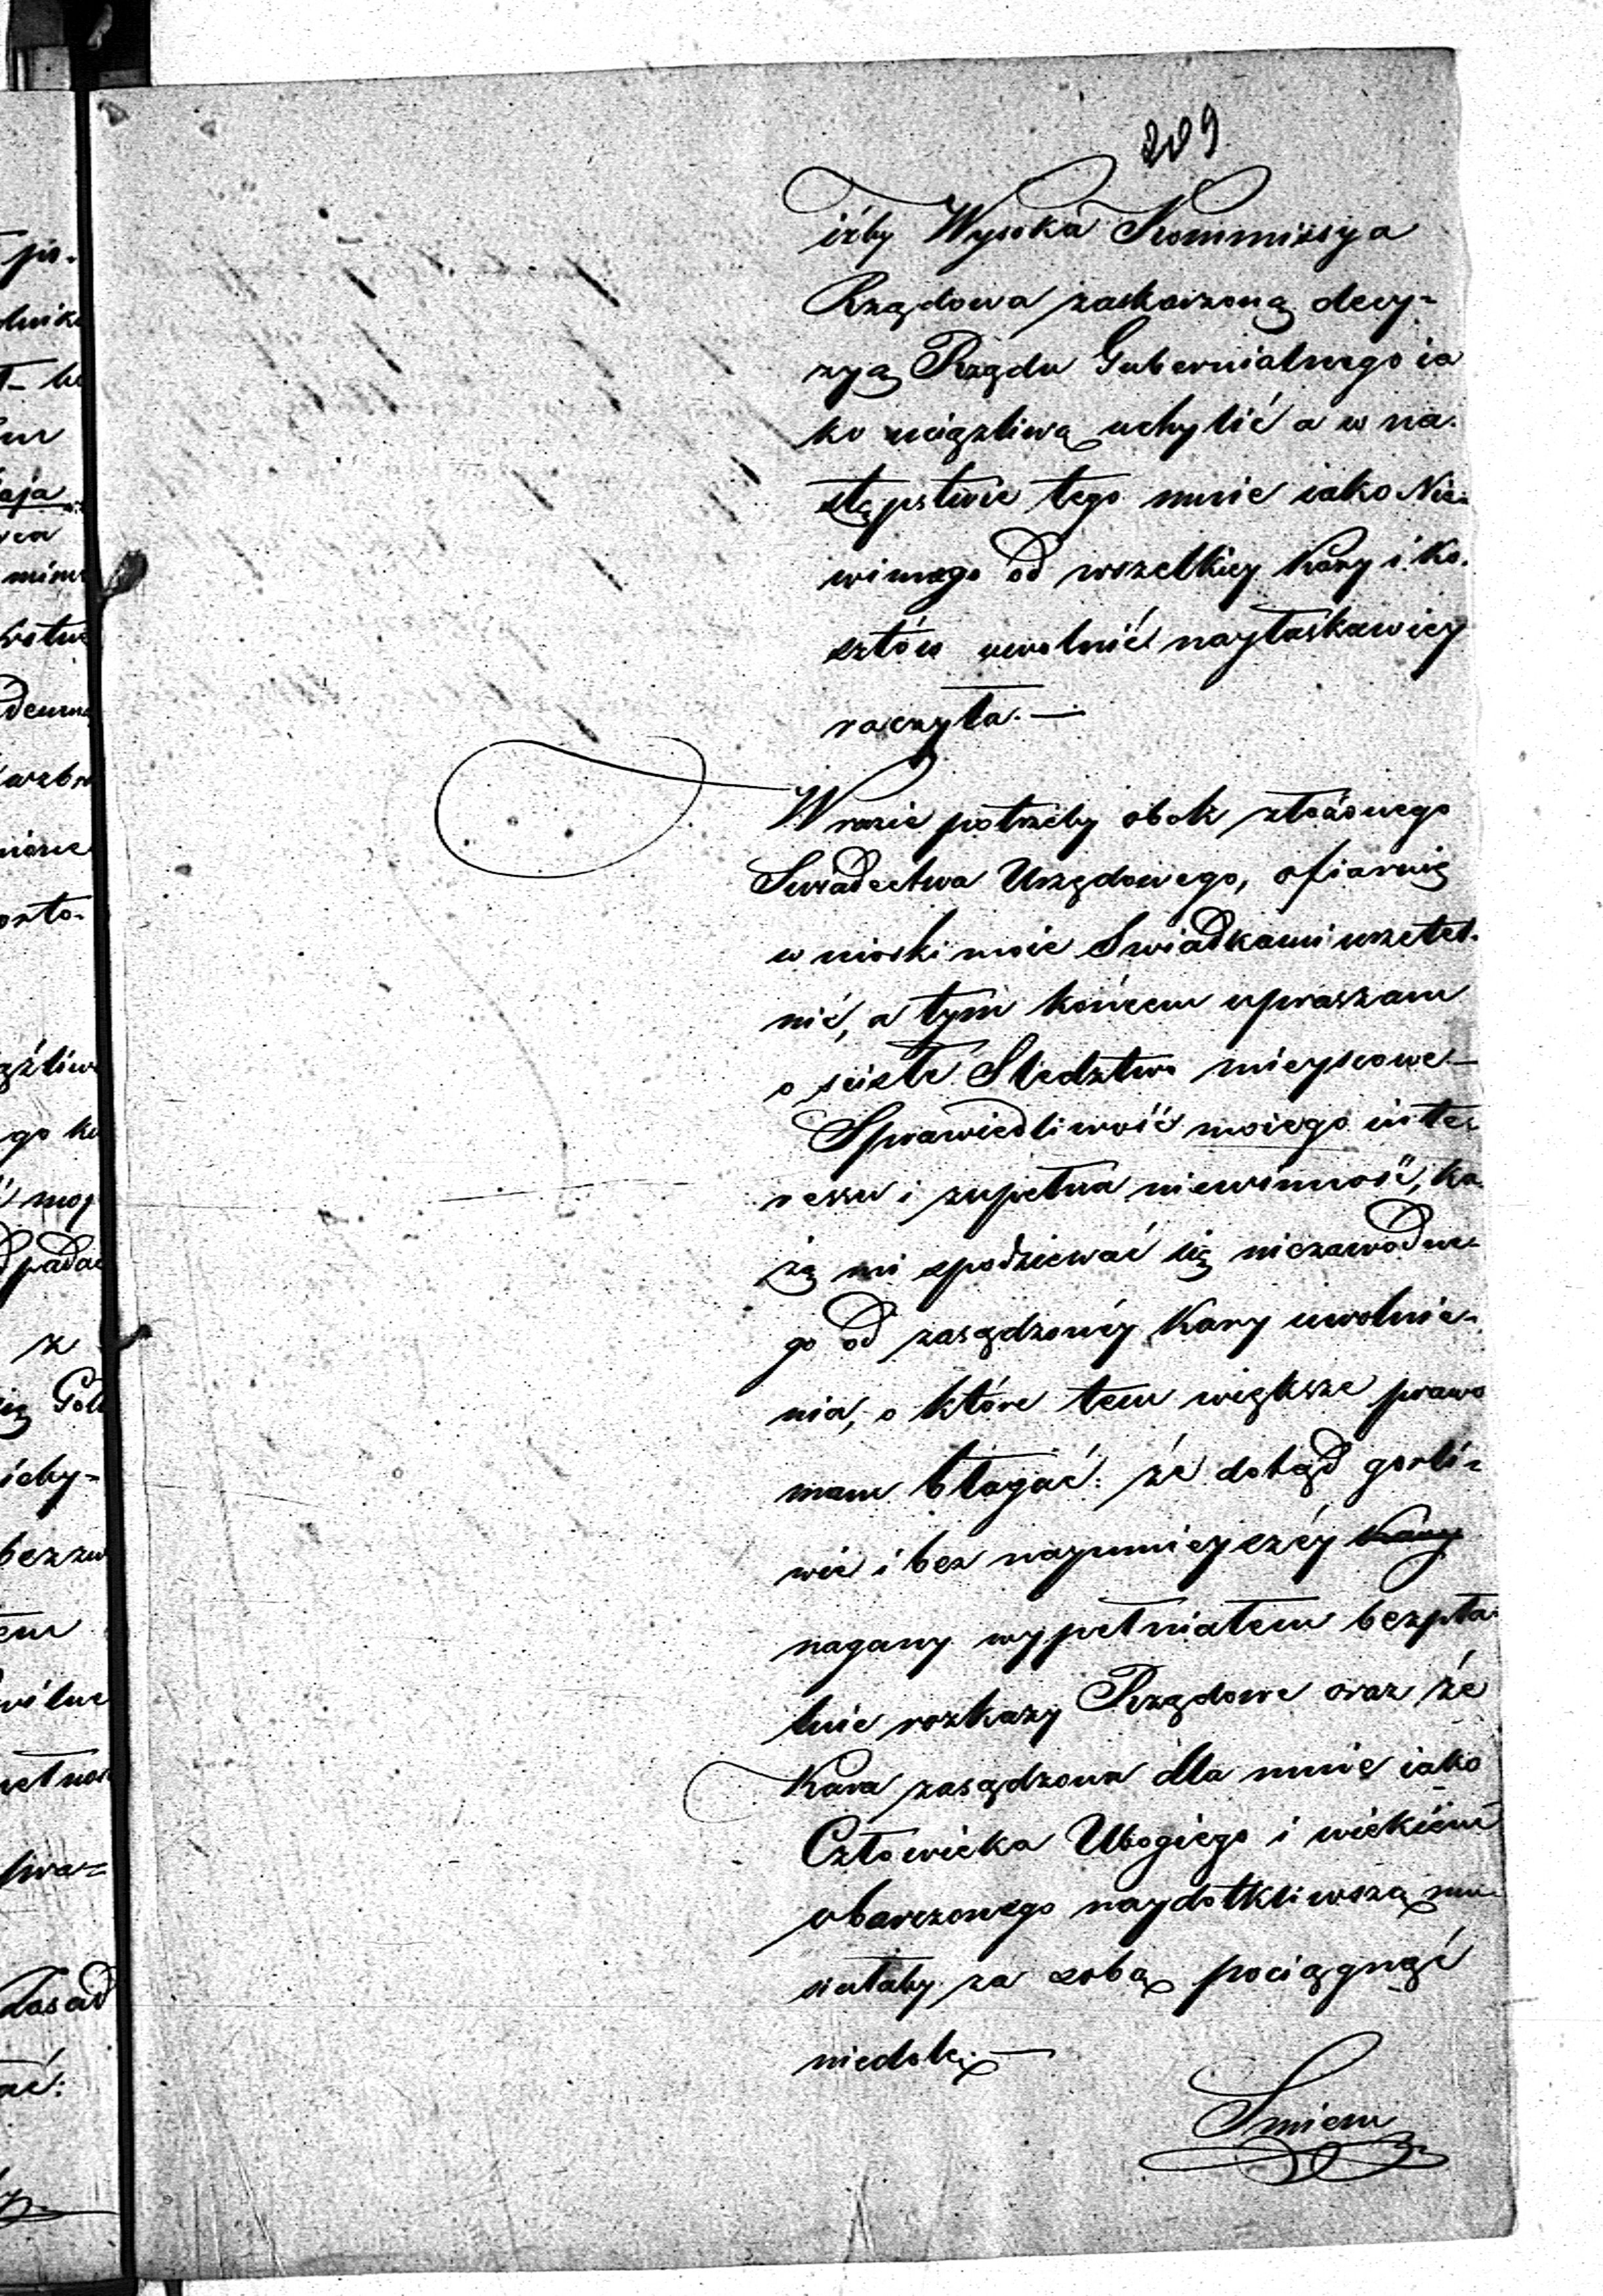 209
iżby Wysoka Kommissya
Rządowa zaskarzoną decy-
zyą Rządu Gubernialnego ia
ko uciążliwą uchylić a w na-
stępstwie tego mnie iako Nie-
winnego od wszelkiey Kary i Ko-
sztów uwolnić nayłaskawiey
raczyła. —
W razie potrzeby obok złożonego
Swiadectwa Urzędowego, ofiaruię
wnioski moie Swiadkami urzetel-
nić, a tym końcem upraszam
o scisłe Sledztwo mieyscowe —
Sprawiedliwość moiego inte-
ressu i zupełna niewinność, ka-
żą mi spodziewać się niezawodne-
go od zasądzonéy Kary uwolnie-
nia, o które tem większe prawo
mam błagać: że dotąd gorli-
wie i bez naymnieyszéy Kary
nagany wypełniałem bezpła-
tnie rozkazy Rządowe oraz że
Kara zasądzona dla mnie iako
Człowieka Ubogiego i wiekiem
obarczonego naydotkliwszą mu-
siałaby za sobą pociągnąć
niedolę. —
Smiem